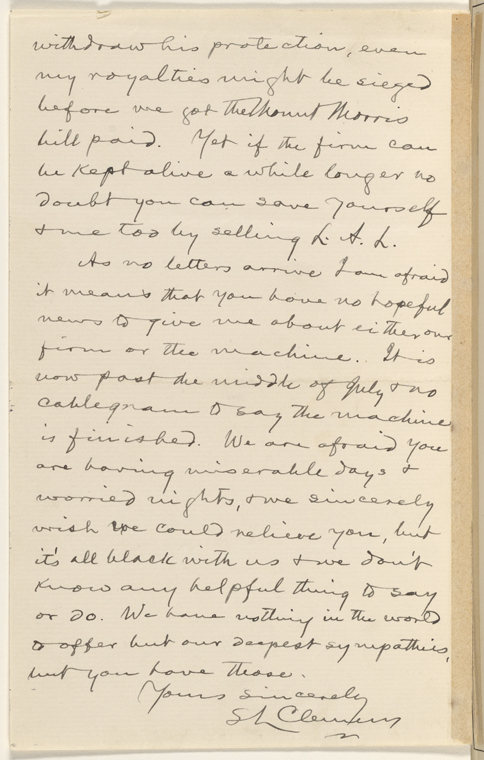 withdraw his protection, even
my royalties might be sieged
before we got the Mount Morris
bill paid. Yet if the firm can
be kept alive a while longer no
doubt you can save yourself
& me too by selling L. A. L.
As no letters arrive I am afraid
it means that you have no hopeful
news to give me about either our
firm or the machine. It is
now past the middle of July & no
cablegram to say the machine
is finished. We are afraid you
are having miserable days &
worried nights, & we sincerely
wish we could relieve you, but
it's all black with us & we don't
know any helpful thing to say
or do. We have nothing in the world
to offer but our deepest sympathies,
but you have those.
Yours sincerely
S L Clemens